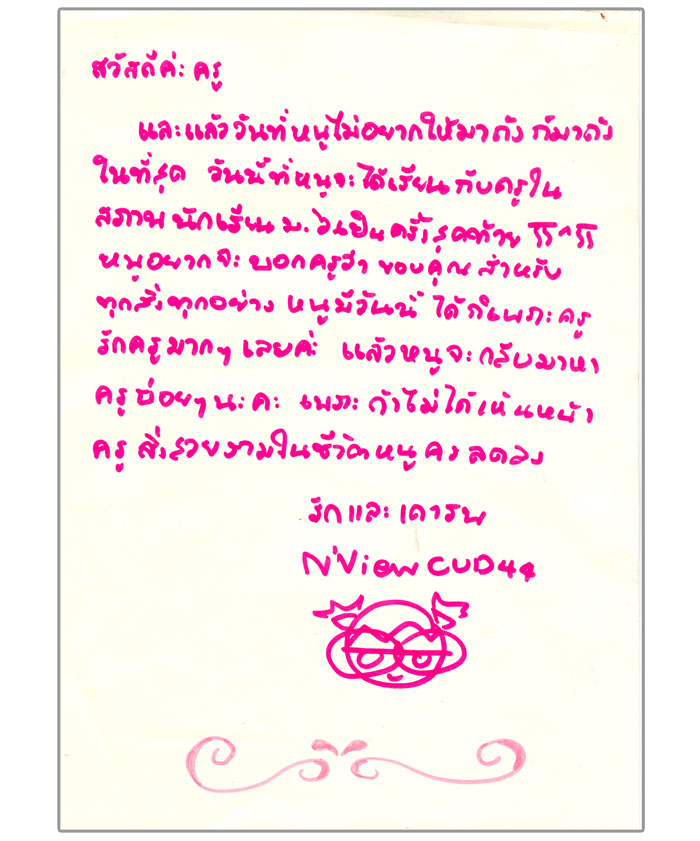 สวัสดีค่ะ ครู
และแล้ววันที่หนูไม่อยากให้มาถึง ก็มาถึง
ในที่สุด วันนี้ที่หนูจะได้เรียนกับครูใน
สภาพนักเรียน ม.6 เป็นครั้งสุดท้าย TT^TT
หนูอยากจะ บอกครูว่า ขอบคุณ สำหรับ
ทุกสิ่งทุกอย่าง หนูมีวันนี้ ได้ก็เพราะครู
รักครูมากๆ เลยค่ะ แล้วหนูจะกลับมาหา
ครูบ่อยๆ นะคะ เพราะ ถ้าไม่ได้เห็นหน้า
ครู สิ่งสวยงามในชีวิตหนู คง ลดลง
รักและเคารพ
N'View CUD44